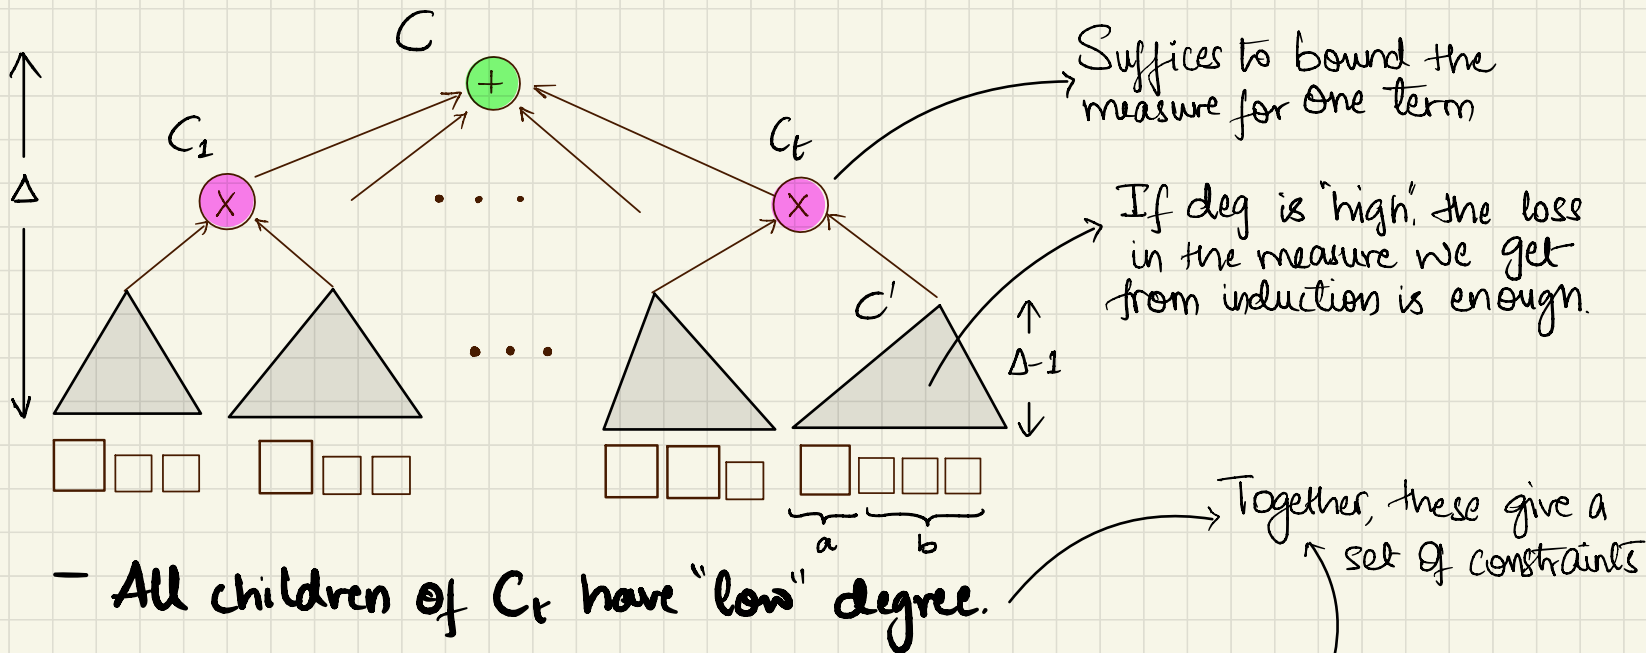 C
+
Suffices to bound the
measure for one term
Δ
C₁
X
. . .
Cₜ
X
If deg is "high", the loss
in the measure we get
from induction is enough.
C'
Δ-1
. . .
a
b
Together, these give a
set of constraints
- All children of Cₜ have "low" degree.